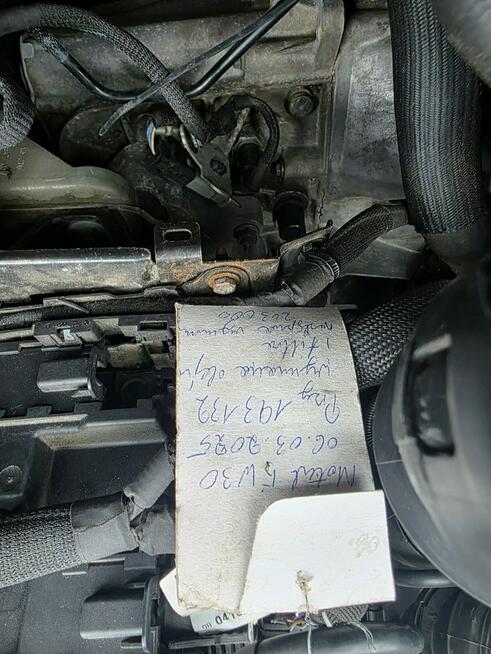 Motul 5W30
06.03.2025
Przy 193132
wymiana oleju
i filtra
Następna wymiana
203 000